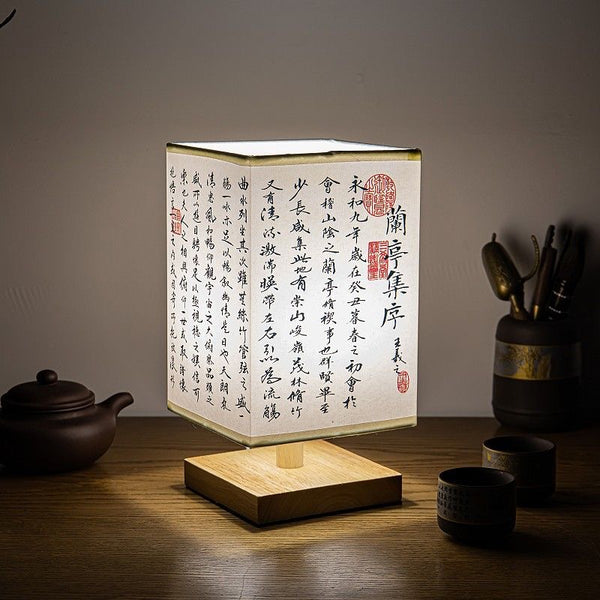 蘭亭集序
王羲之
永和九年歲在癸丑暮春之初會於
會稽山陰之蘭亭脩禊事也群賢畢至
少長咸集此地有崇山峻嶺茂林脩竹
又有清流激湍暎帶左右引以為流觴
曲水列坐其次雖無絲竹管弦之盛
觴一詠亦足以暢敘幽情是日也天朗氣
清惠風和暢仰觀宇宙之大俯察品類之
盛所以遊目騁懷足以極視聽之娛信可
樂也夫人之相與俯仰一世或取諸懷
抱悟言之內或因寄所託放浪形